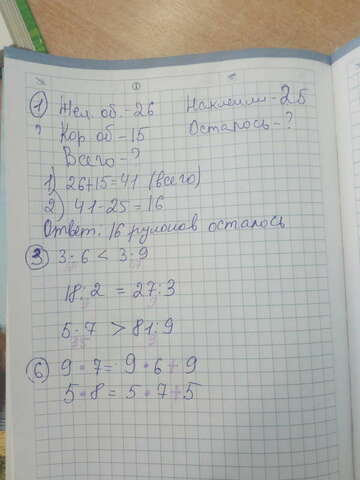 ①
① Жел. об. - 26 Наклеили - 25
? Кор. об - 15 Осталось - ?
Всего - ?
1) 26+15=41 (всего)
2) 41-25=16
Ответ: 16 рулонов осталось
③ 3·6 < 3·9
18:2 = 27:3
5·7 > 81:9
35 9
⑥ 9·7= 9·6+9
5·8= 5·7+5